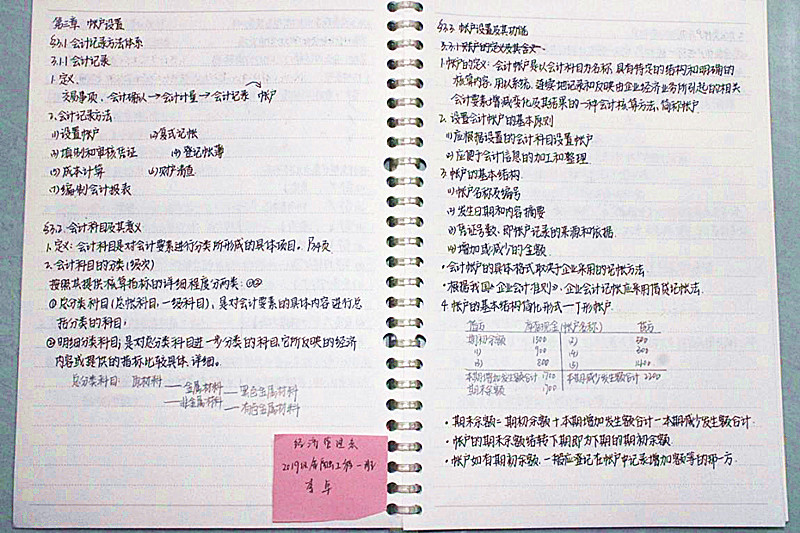 第三章 帐户设置
§3.1 会计记录方法体系
3.1.1 会计记录
1. 定义
交易事项、会计确认→会计计量→会计记录 帐户
2. 会计记录方法
(1) 设置帐户 (2) 复式记帐
(3) 填制和审核凭证 (4) 登记帐簿
(5) 成本计算 (6) 财产清查
(7) 编制会计报表
§3.2. 会计科目及其意义
1. 定义: 会计科目是对会计要素进行分类所形成的具体项目。P34页
2. 会计科目的分类(级次)
按照其提供核算指标的详细程度分两类: ①②
①总分类科目(总帐科目、一级科目), 是对会计要素的具体内容进行总
括分类的科目;
②明细分类科目; 是对总分类科目进一步分类的科目, 它所反映的经济
内容或提供的指标比较具体、详细。
总分类科目 原材料 —金属材料 —黑色金属材料
—非金属材料 —有色金属材料
§3.3 帐户设置及其功能
3.3.1 帐户的定义及其含义
1. 帐户的定义: 会计帐户是以会计科目为名称, 具有特定的结构和明确的
核算内容, 用以系统、连续地记录和反映由企业经济业务所引起的相关
会计要素增减变化及其结果的一种会计核算方法, 简称帐户
2. 设置会计帐户的基本原则
(1) 应根据设置的会计科目设置帐户
(2) 应便于会计信息的加工和整理
3. 帐户的基本结构
(1) 帐户名称及编号
(2) 发生日期和内容摘要
(3) 凭证号数, 即帐户记录的来源和依据
(4) 增加或减少的金额
·会计帐户的具体格式取决于企业采用的记帐方法
·根据我国《企业会计准则》, 企业会计记帐应采用借贷记帐法.
4. 帐户的基本结构简化形式—丁形帐户.
借方 库存现金(帐户名称) 贷方
期初余额 1500 2) 500
1) 900 4)
3) 800 5)
本期增加发生额合计 1700 本期减少发生额合计
期末余额
·期末余额 = 期初余额 + 本期增加发生额合计 - 本期减少发生额合计.
·帐户的期末余额结转下期即为下期的期初余额.
·帐户如有期初余额, 一般应登记在帐户中记录增加数等的那一方.
经济管理系
2019级
李卓